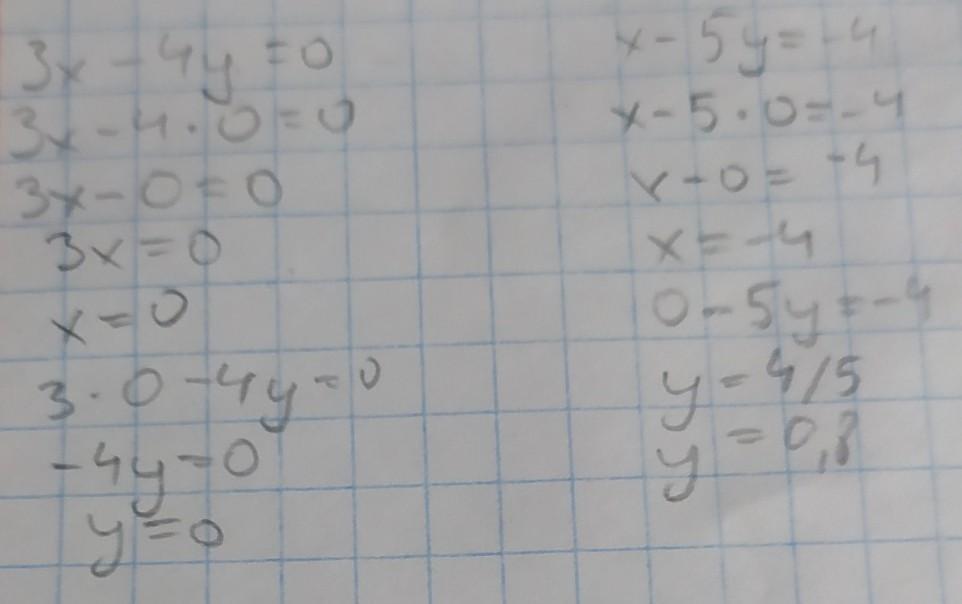 3x - 4y = 0
3x - 4 · 0 = 0
3x - 0 = 0
3x = 0
x = 0
3 · 0 - 4y = 0
-4y = 0
y = 0
x - 5y = -4
x - 5 · 0 = -4
x - 0 = -4
x = -4
0 - 5y = -4
y = 4/5
y = 0,8